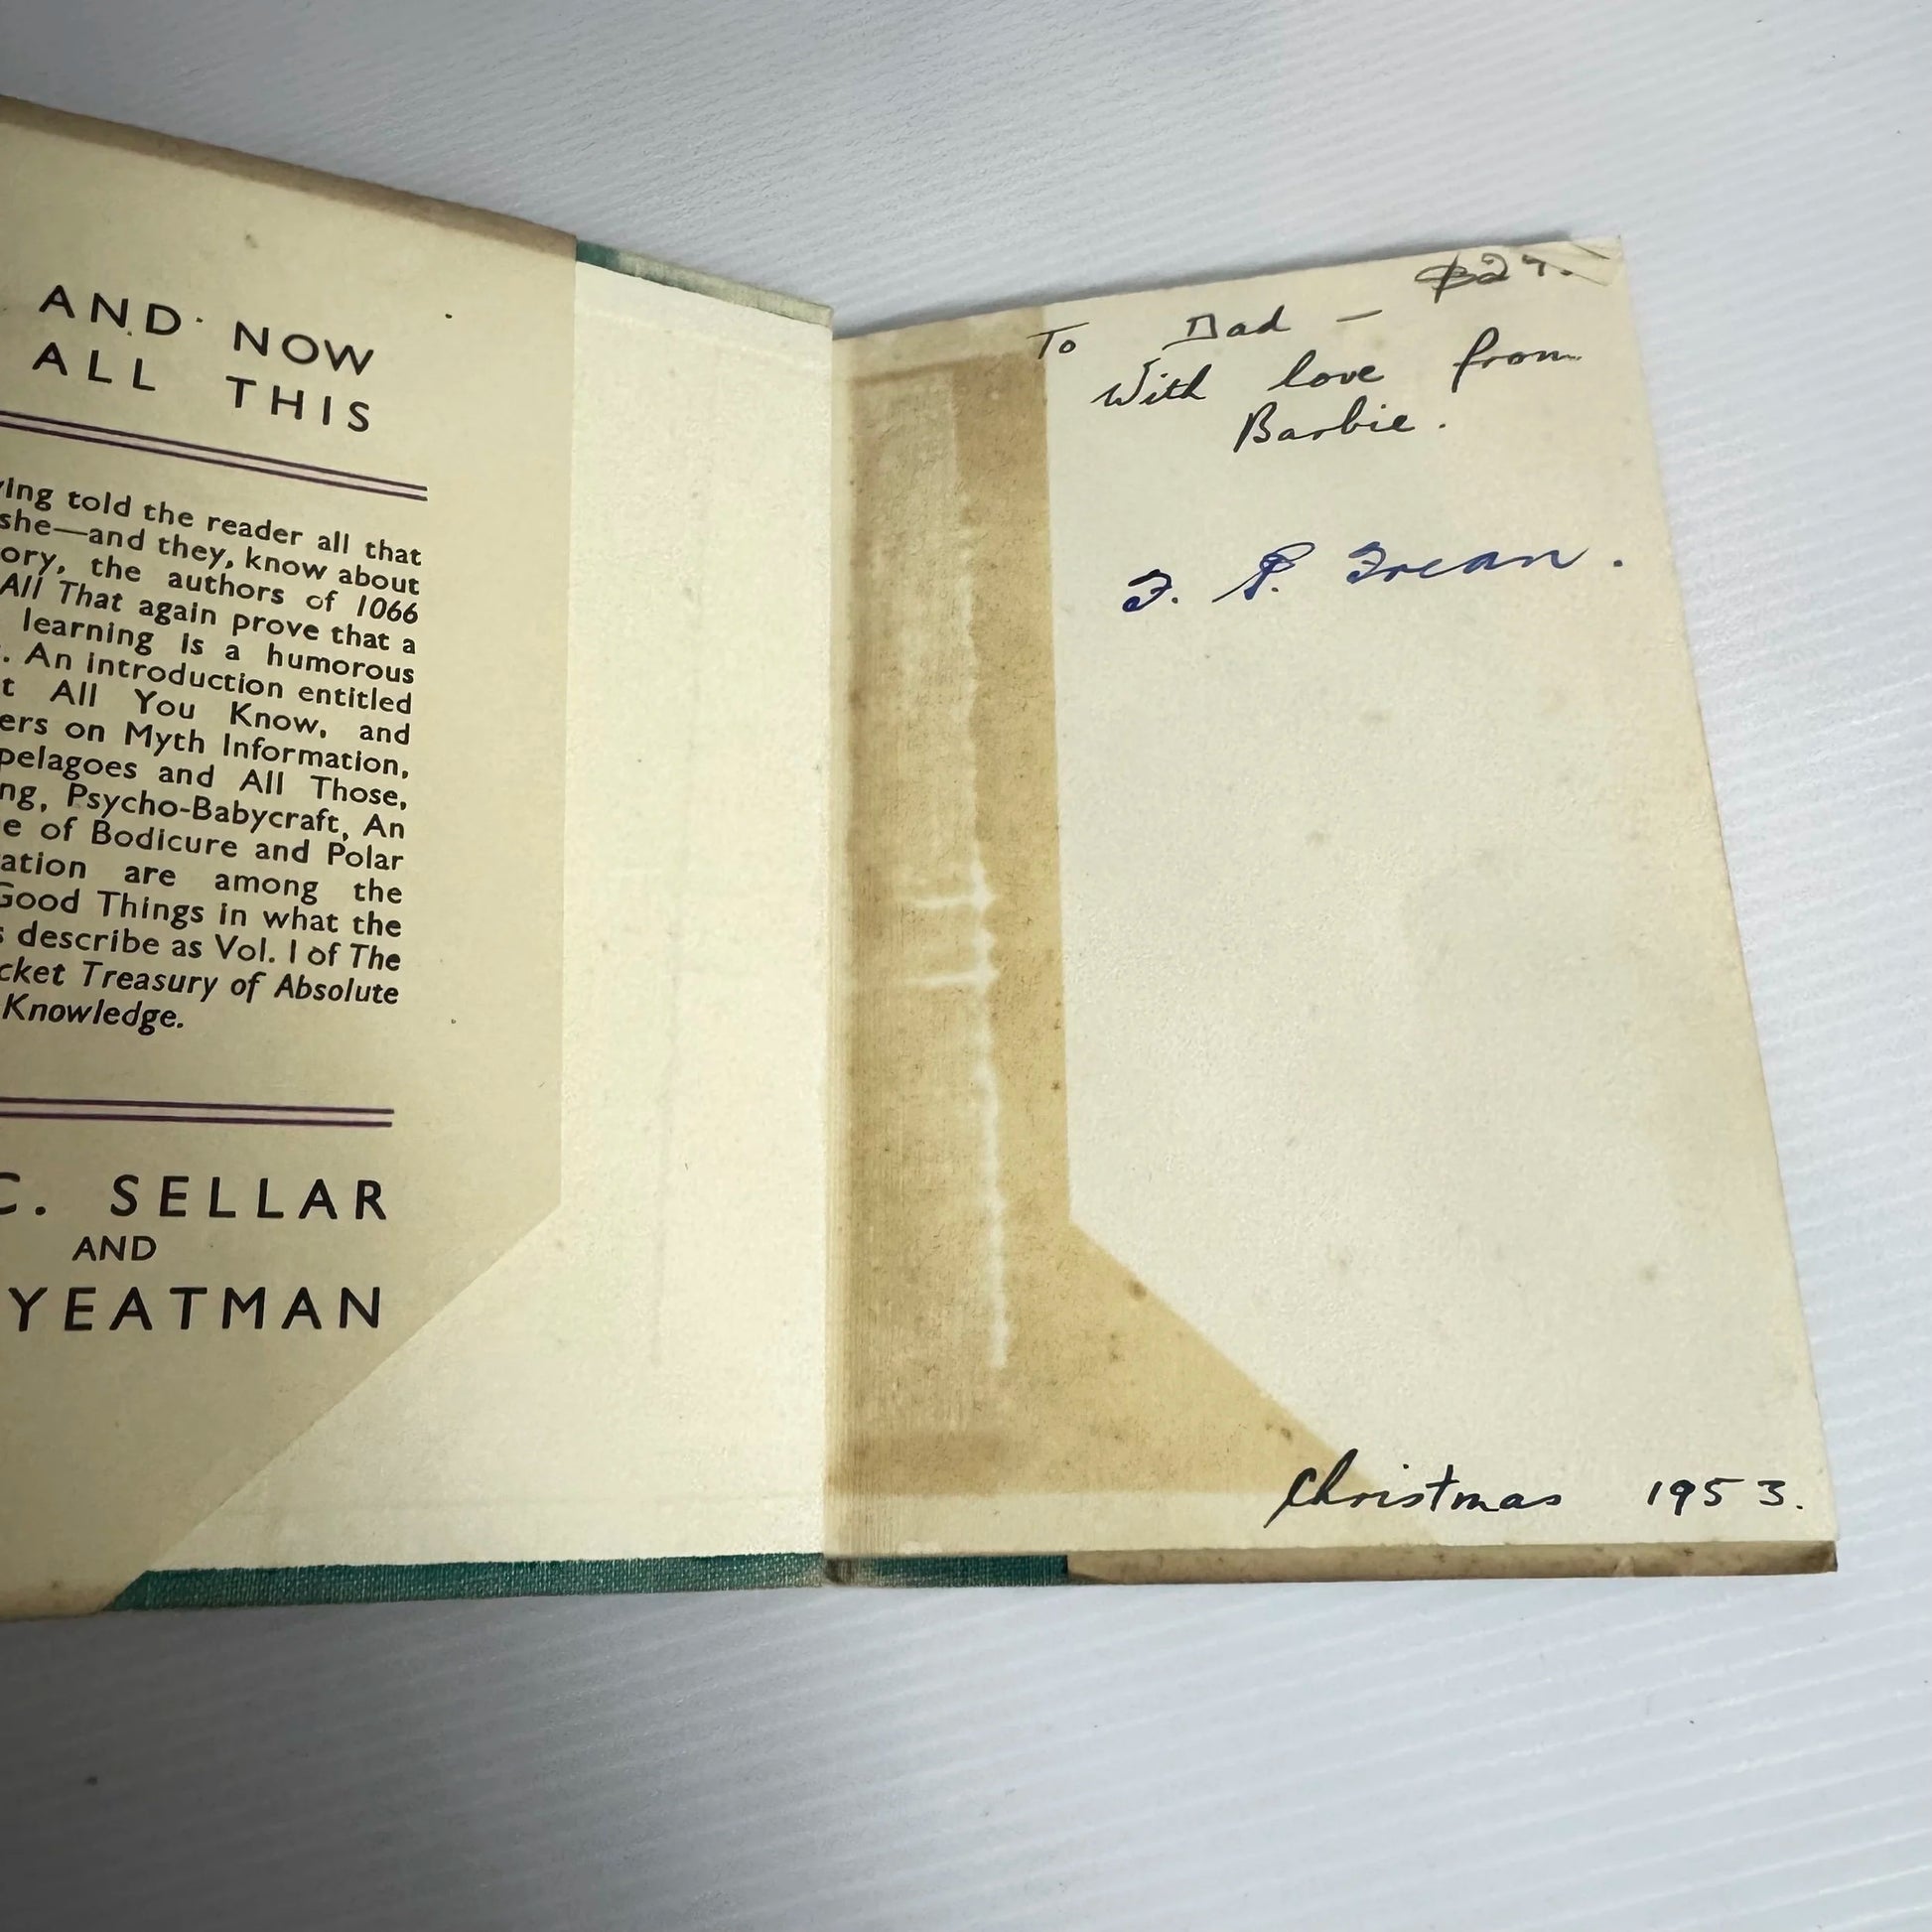 AND NOW
ALL THIS
ing told the reader all that
she—and they, know about
ory, the authors of 1066
All That again prove that a
learning is a humorous
. An introduction entitled
t All You Know, and
ers on Myth Information,
pelagoes and All Those,
ng, Psycho-Babycraft, An
e of Bodicure and Polar
ation are among the
Good Things in what the
s describe as Vol. I of The
cket Treasury of Absolute
Knowledge.
C. SELLAR
AND
YEATMAN
To Dad —
With love from
Barbie.
Christmas 1953.